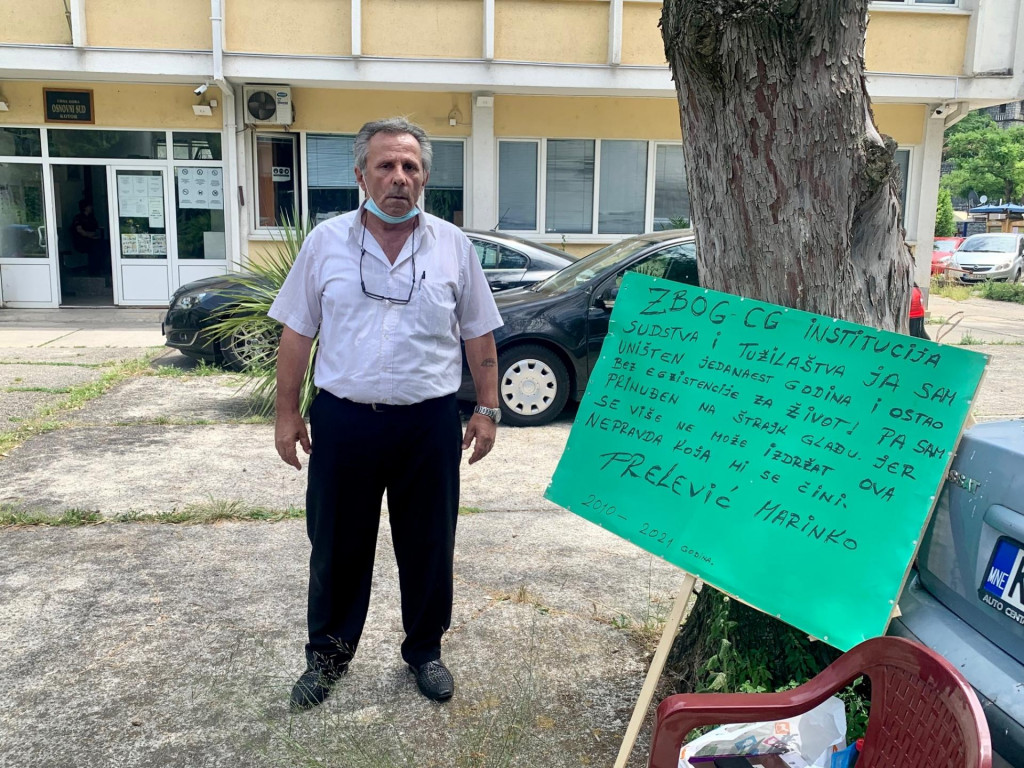 CRNA GORA
OSNOVNI SUD
KOTOR
ZBOG CG INSTITUCIJA
SUDSTVA I TUŽILAŠTVA JA SAM
UNIŠTEN JEDANAEST GODINA I OSTAO
BEZ EGZISTENCIJE ZA ŽIVOT! PA SAM
PRINUĐEN NA ŠTRAJK GLAĐU. JER
SE VIŠE NE MOŽE IZDRŽAT OVA
NEPRAVDA KOJA MI SE ČINI.
PRELEVIĆ MARINKO
2010 - 2021 GODINA.
MNE